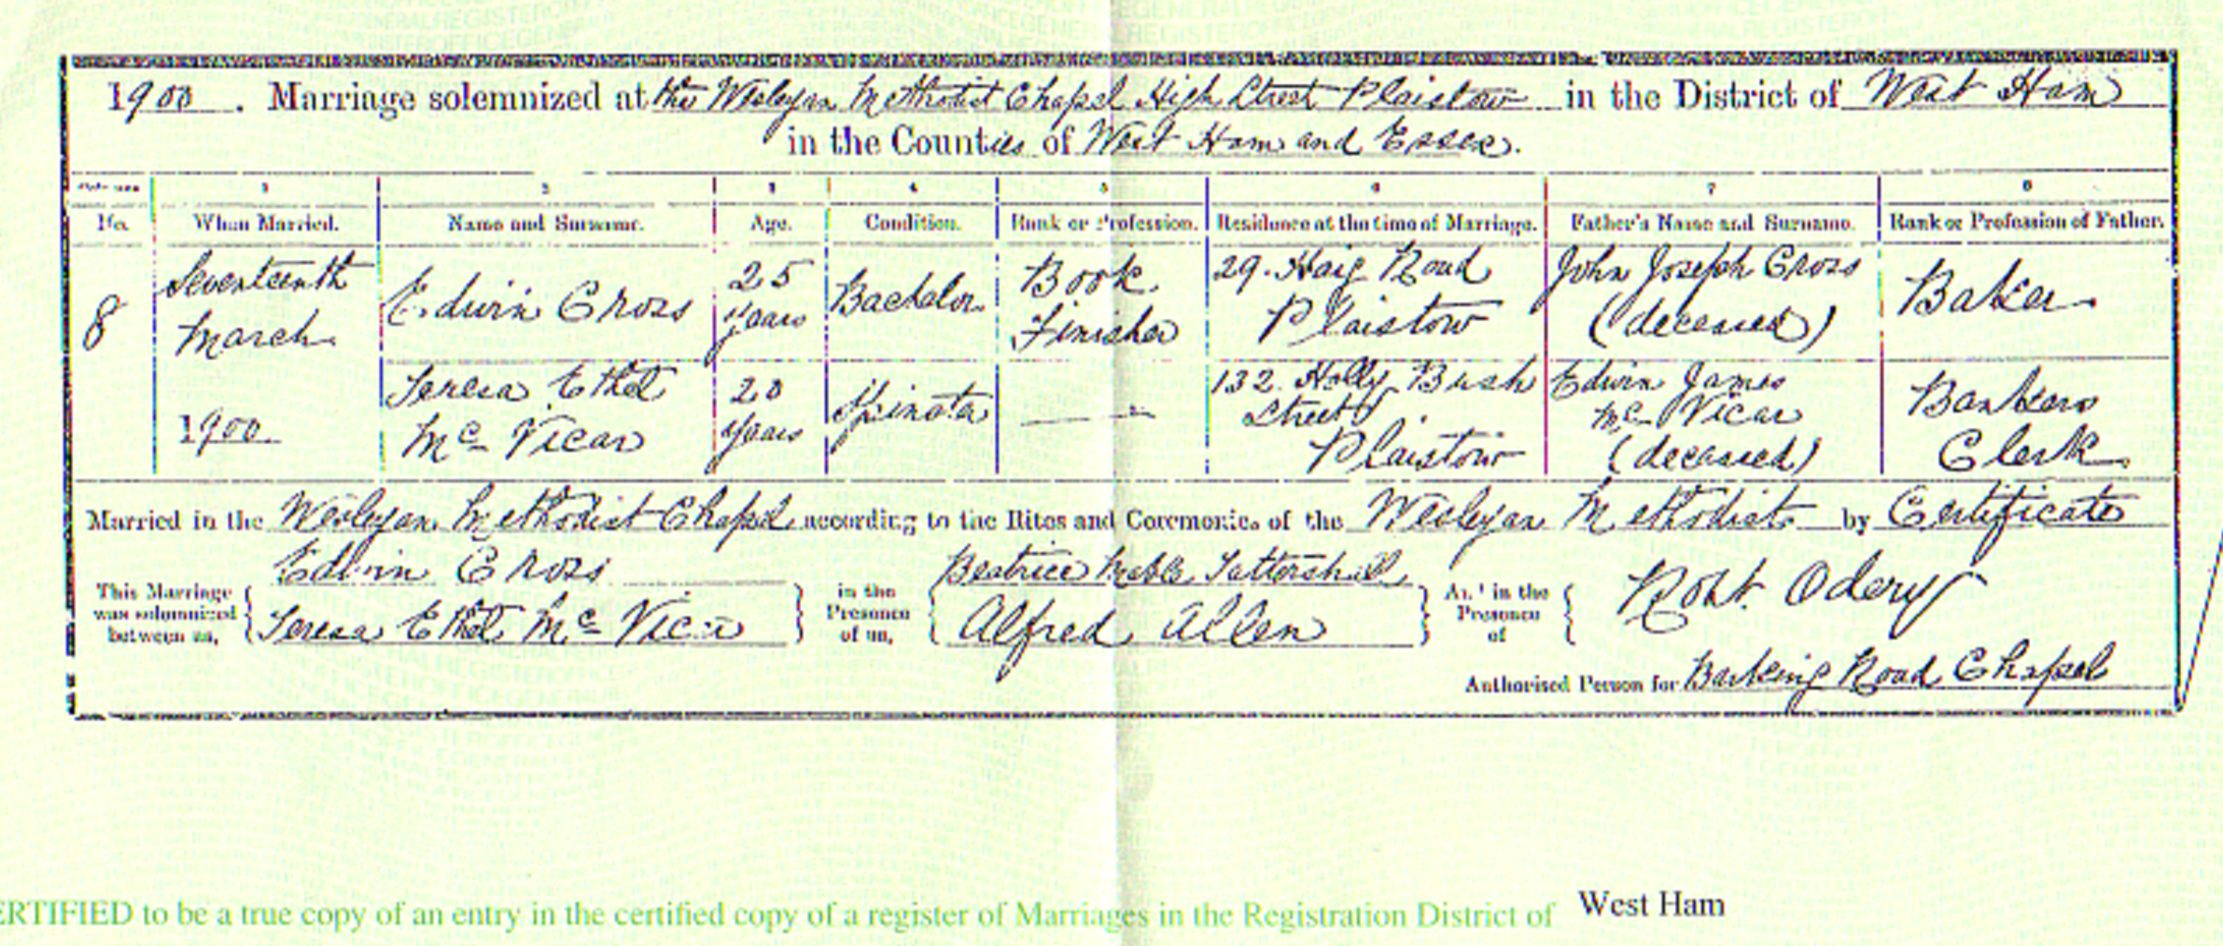 1900. Marriage solemnized at the Wesleyan Methodist Chapel High Street Plaistow in the District of West Ham
in the Counties of West Ham and Essex.
1 2 3 4 5 6 7 8
No. When Married. Name and Surname. Age. Condition. Rank or Profession. Residence at the time of Marriage. Father's Name and Surname. Rank or Profession of Father.
8 Seventeenth March 1900 Edwin Cross 25 years Bachelor Book Finisher 29. Haig Road Plaistow John Joseph Cross (deceased) Baker
Teresa Ethel Mc Vicar 20 years Spinster — 132. Holly Bush Street Plaistow Edwin James Mc Vicar (deceased) Bankers Clerk
Married in the Wesleyan Methodist Chapel according to the Rites and Ceremonies of the Wesleyan Methodists by Certificate
This Marriage was solemnized between us, { Edwin Cross
Teresa Ethel Mc Vicar } in the Presence of us, { Beatrice Tattershall
Alfred Allen } And in the Presence of { Robt. Odery
Authorised Person for Barking Road Chapel
ERTIFIED to be a true copy of an entry in the certified copy of a register of Marriages in the Registration District of West Ham